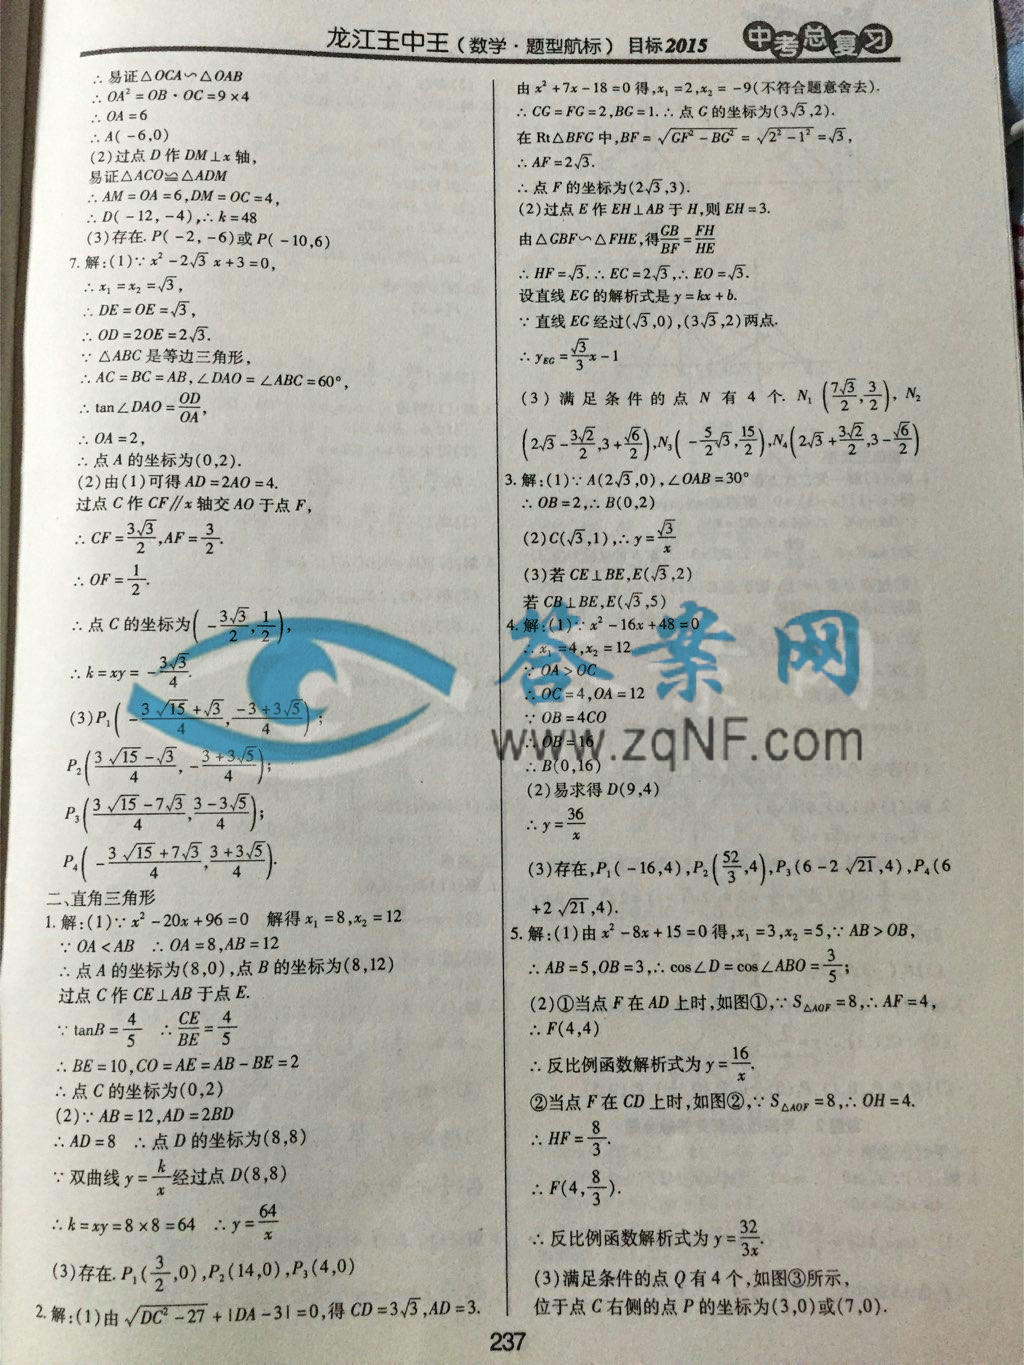 龙江王中王(数学·题型航标) 目标2015 中考总复习
∴易证△OCA∽△OAB
∴OA²=OB·OC=9×4
∴OA=6
∴A(-6,0)
(2)过点D作DM⊥x轴,
易证△ACO≌△ADM
∴AM=OA=6,DM=OC=4,
∴D(-12,-4),∴k=48
(3)存在.P(-2,-6)或P(-10,6)
7.解:(1)∵x²-2√3 x+3=0,
∴x₁=x₂=√3,
∴DE=OE=√3,
∴OD=2OE=2√3.
∵△ABC是等边三角形,
∴AC=BC=AB,∠DAO=∠ABC=60°,
∴tan∠DAO=OD/OA,
∴OA=2,
∴点A的坐标为(0,2).
(2)由(1)可得AD=2AO=4.
过点C作CF∥x轴交AO于点F,
∴CF=3√3/2,AF=3/2.
∴OF=1/2.
∴点C的坐标为(-3√3/2,1/2),
∴k=xy=-3√3/4.
(3)P₁(-(3√15+√3)/4,(-3+3√5)/4);
P₂((3√15-√3)/4,-(3+3√5)/4);
P₃((3√15-7√3)/4,(3-3√5)/4);
P₄(-(3√15+7√3)/4,(3+3√5)/4).
二、直角三角形
1.解:(1)∵x²-20x+96=0 解得x₁=8,x₂=12
∵OA<AB ∴OA=8,AB=12
∴点A的坐标为(8,0),点B的坐标为(8,12)
过点C作CE⊥AB于点E.
∵tanB=4/5 ∴CE/BE=4/5
∴BE=10,CO=AE=AB-BE=2
∴点C的坐标为(0,2)
(2)∵AB=12,AD=2BD
∴AD=8 ∴点D的坐标为(8,8)
∵双曲线y=k/x经过点D(8,8)
∴k=xy=8×8=64 ∴y=64/x
(3)存在.P₁(3/2,0),P₂(14,0),P₃(4,0)
2.解:(1)由√(DC²-27)+|DA-3|=0,得CD=3√3,AD=3.
由x²+7x-18=0得,x₁=2,x₂=-9(不符合题意舍去).
∴CG=FG=2,BG=1.∴点G的坐标为(3√3,2).
在Rt△BFG中,BF=√(GF²-BG²)=√(2²-1²)=√3,
∴AF=2√3.
∴点F的坐标为(2√3,3).
(2)过点E作EH⊥AB于H,则EH=3.
由△GBF∽△FHE,得GB/BF=FH/HE
∴HF=√3.∴EC=2√3,∴EO=√3.
设直线EG的解析式是y=kx+b.
∵直线EG经过(√3,0),(3√3,2)两点.
∴y_EG=√3/3x-1
(3)满足条件的点N有4个.N₁(7√3/2,3/2),N₂
(2√3-3√2/2,3+√6/2),N₃(-5/2√3,15/2),N₄(2√3+3√2/2,3-√6/2)
3.解:(1)∵A(2√3,0),∠OAB=30°
∴OB=2,∴B(0,2)
(2)C(√3,1),∴y=√3/x
(3)若CE⊥BE,E(√3,2)
若CB⊥BE,E(√3,5)
4.解:(1)∵x²-16x+48=0
∴x₁=4,x₂=12
∵OA>OC
∴OC=4,OA=12
∵OB=4CO
∴OB=16
∴B(0,16)
(2)易求得D(9,4)
∴y=36/x
(3)存在,P₁(-16,4),P₂(52/3,4),P₃(6-2√21,4),P₄(6
+2√21,4).
5.解:(1)由x²-8x+15=0得,x₁=3,x₂=5,∵AB>OB,
∴AB=5,OB=3,∴cos∠D=cos∠ABO=3/5;
(2)①当点F在AD上时,如图①,∵S△AOF=8,∴AF=4,
∴F(4,4)
∴反比例函数解析式为y=16/x.
②当点F在CD上时,如图②,∵S△AOF=8,∴OH=4.
∴HF=8/3.
∴F(4,8/3).
∴反比例函数解析式为y=32/3x.
(3)满足条件的点Q有4个,如图③所示,
位于点C右侧的点P的坐标为(3,0)或(7,0).
237
答案网
www.zqNF.com